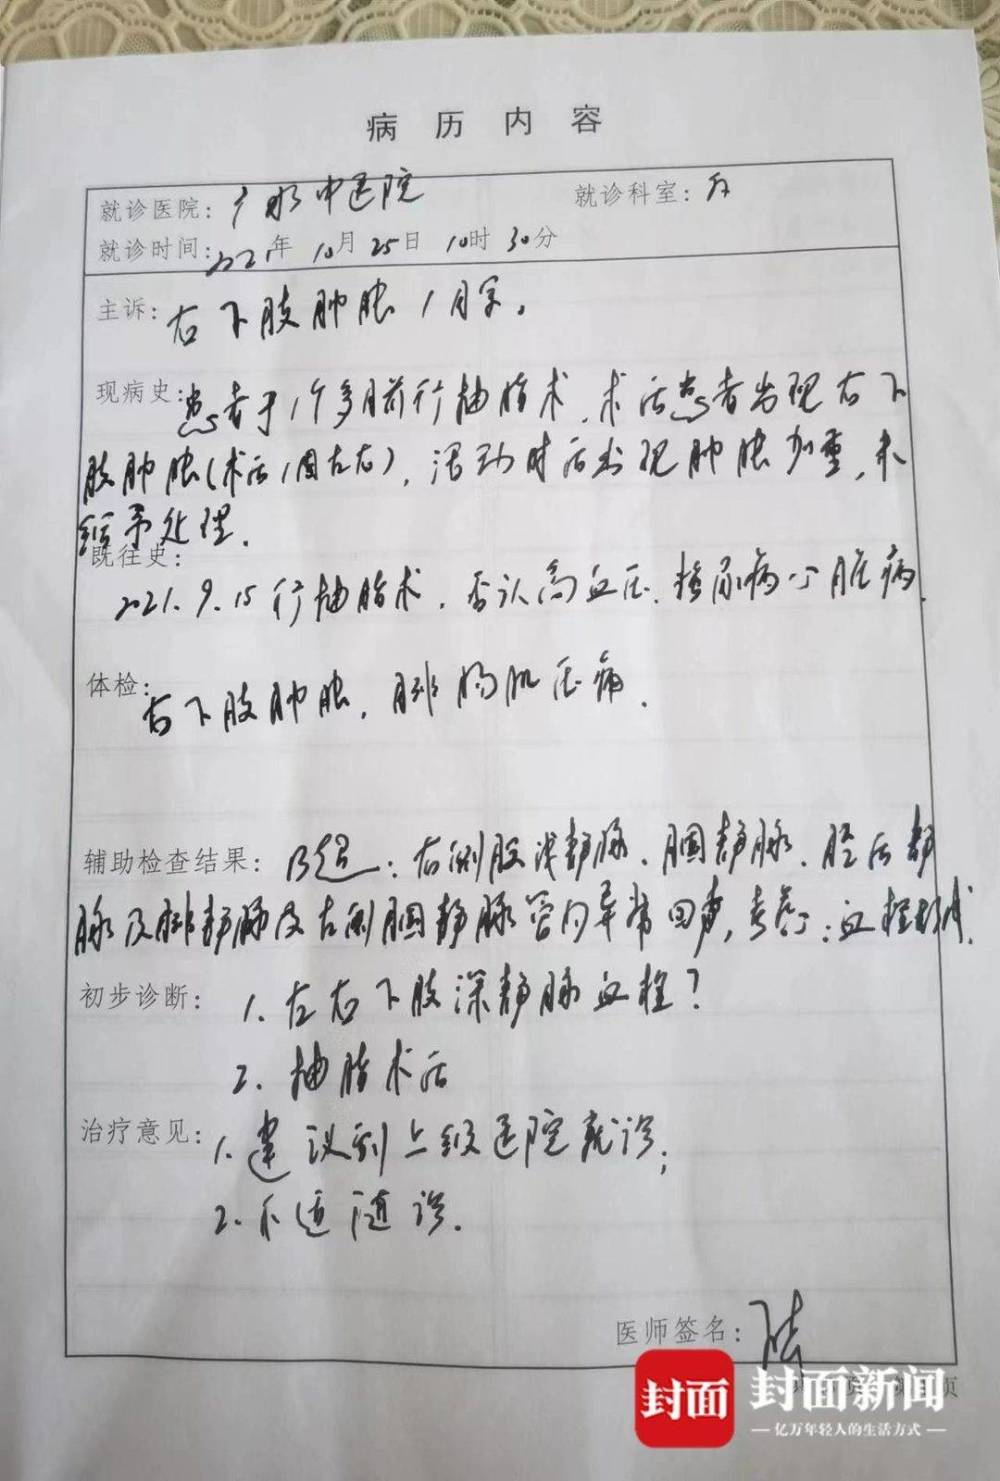 病历内容
就诊医院：广水中医院 就诊科室：
就诊时间：2021年10月25日10时30分
主诉：右下肢肿胀1月余。
现病史：患者于1个多月前行抽脂术，术后患者出现右下
肢肿胀（术后1周左右），活动时后出现肿胀加重，未
给予处理。
既往史：
2021.9.15行抽脂术，否认高血压、糖尿病、心脏病
体检：
右下肢肿胀，腓肠肌压痛。
辅助检查结果：B超：右侧股浅静脉、腘静脉、胫后静
脉及腓静脉及左侧腘静脉管内异常回声，考虑：血栓形成
初步诊断：1.左右下肢深静脉血栓？
2.抽脂术后
治疗意见：1.建议到上级医院就诊；
2.不适随诊。
医师签名：
封面 封面新闻
亿万年轻人的生活方式